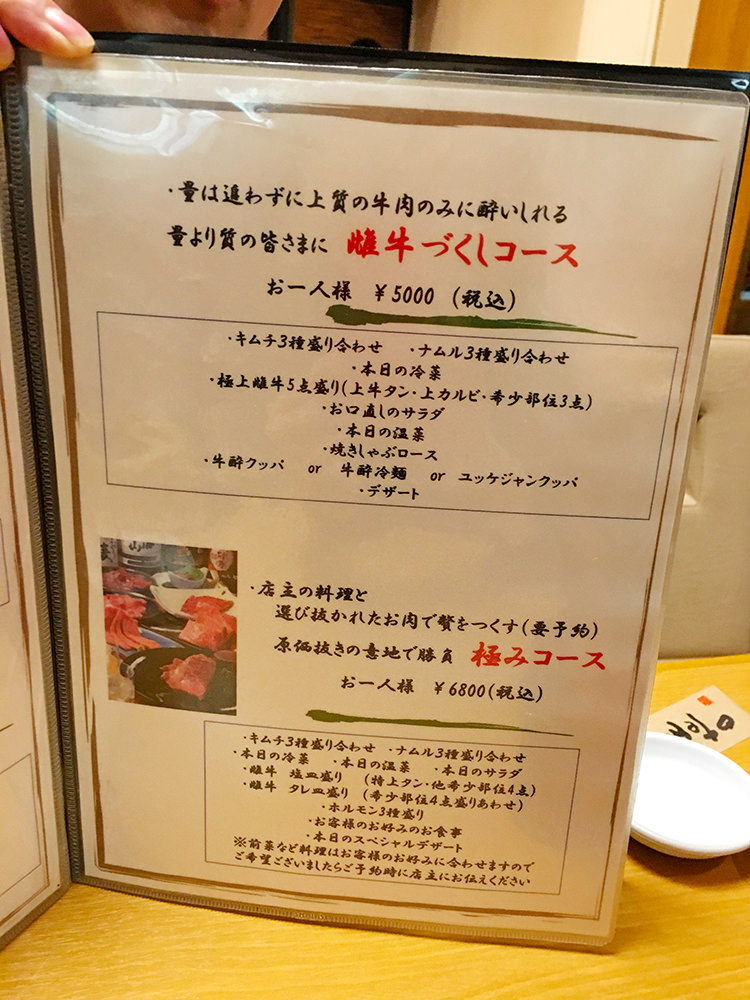 ・量は追わずに上質の牛肉のみに酔いしれる
量より質の皆さまに 雌牛づくしコース
お一人様 ¥5000 (税込)
・キムチ3種盛り合わせ ・ナムル3種盛り合わせ
・本日の冷菜
・極上雌牛5点盛り(上牛タン・上カルビ・希少部位3点)
・お口直しのサラダ
・本日の温菜
・焼きしゃぶロース
・牛酔クッパ or 牛酔冷麺 or ユッケジャンクッパ
・デザート
・店主の料理と
選び抜かれたお肉で贅をつくす(要予約)
原価抜きの意地で勝負 極みコース
お一人様 ¥6800(税込)
・キムチ3種盛り合わせ ・ナムル3種盛り合わせ
・本日の冷菜 ・本日の温菜 ・本日のサラダ
・雌牛 塩皿盛り (特上タン・他希少部位4点)
・雌牛 タレ皿盛り (希少部位4点盛りあわせ)
・ホルモン3種盛り
・お客様のお好みのお食事
・本日のスペシャルデザート
※前菜など料理はお客様のお好みに合わせますので
ご希望ございましたらご予約時に店主にお伝えください